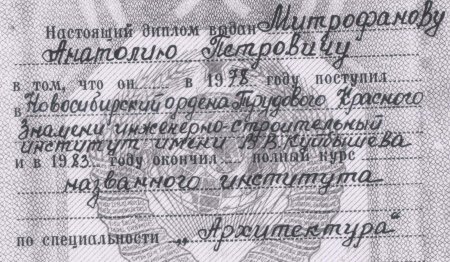 Настоящий диплом выдан Митрофанову
Анатолию Петровичу
в том, что он в 1978 году поступил
в Новосибирский ордена Трудового Красного
Знамени инженерно-строительный
институт имени В.В.Куйбышева
и в 1983 году окончил полный курс
названного института
по специальности „Архитектура"